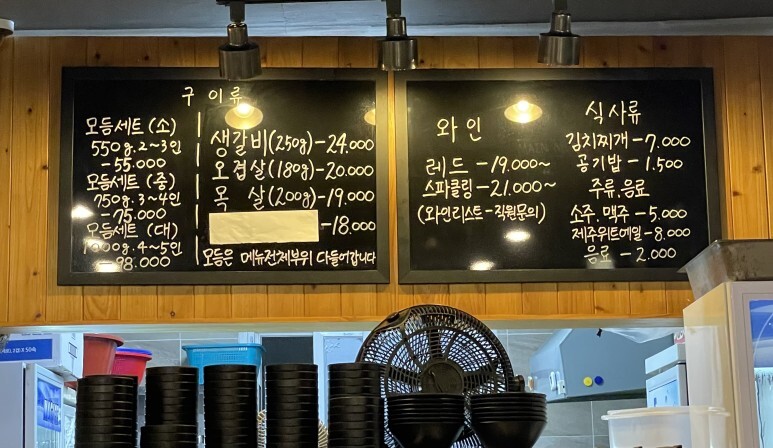 구 이 류
모듬세트 (소)
550g. 2~3인
-55.000
모듬세트 (중)
750g. 3~4인
-75.000
모듬세트 (대)
1000g. 4~5인
-98.000
생갈비(250g)-24.000
오겹살(180g)-20.000
목 살(200g)-19.000
-18.000
모듬은 메뉴전제부위 다들어갑니다
와 인
레드 -19.000~
스파클링 -21.000~
(와인리스트-직원문의)
식 사 류
김치찌개 -7.000
공기밥 -1.500
주류.음료
소주.맥주 -5.000
제주위트에일 -8.000
음료 -2.000